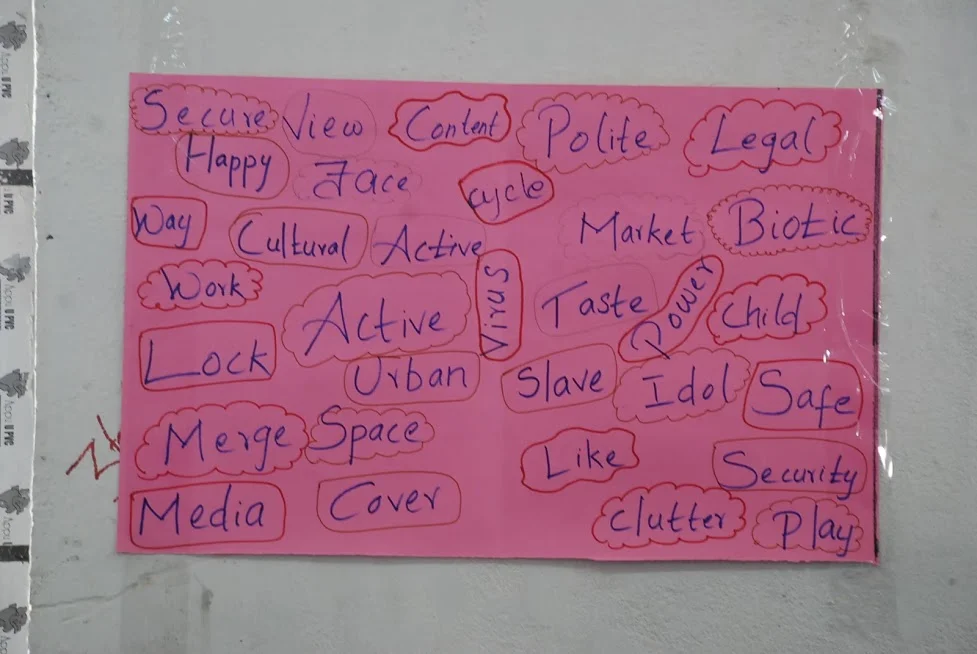 Secure View Content Polite Legal
Happy Face cycle
Way Cultural Active Market Biotic
Work Active Virus Taste Power Child
Lock Urban Slave Idol Safe
Merge Space Like Security
Media Cover clutter Play
U PVC
U PVC
U PVC
U PVC
U PVC